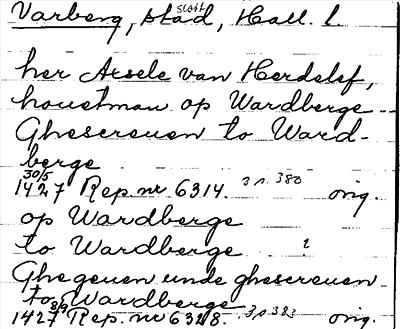 Varberg, stad, Hall. l.
slott
her Axsele van Herdelef,
houetman op Wardberge
Ghescreuen to Ward-
berge
30/5
1427 Rep. nr 6314. 3 s. 380 orig.
op Wardberge
to Wardberge ?
Ghegeuen unde ghescreuen
to Wardberge
8/9
1427 Rep. nr 6328. 3 s. 383 orig.